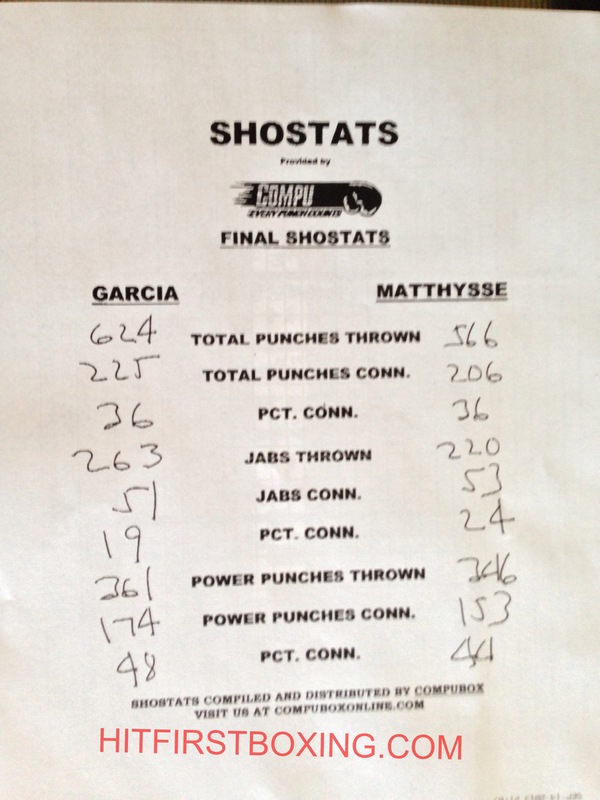 SHOSTATS
Provided by
COMPU
EVERY PUNCH COUNTS
FINAL SHOSTATS
GARCIA MATTHYSSE
624 TOTAL PUNCHES THROWN 566
225 TOTAL PUNCHES CONN. 206
36 PCT. CONN. 36
263 JABS THROWN 220
51 JABS CONN. 53
19 PCT. CONN. 24
361 POWER PUNCHES THROWN 346
174 POWER PUNCHES CONN. 153
48 PCT. CONN. 44
SHOSTATS COMPILED AND DISTRIBUTED BY COMPUBOX
VISIT US AT COMPUBOXONLINE.COM
HITFIRSTBOXING.COM